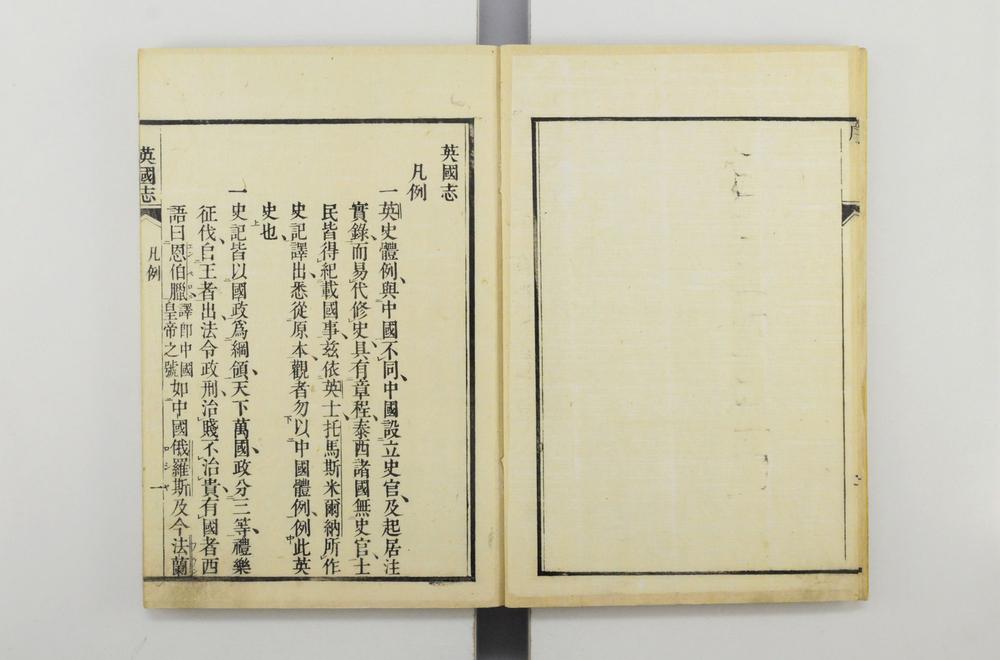 英國志
凡例
一英史體例與中國不同中國設立史官及起居注
實錄而易代修史具有章程泰西諸國無史官士
民皆得紀載國事茲依英士托馬斯米爾納所作
史記譯出悉從原本觀者勿以中國體例例此英
史也
一史記皆以國政爲綱領天下萬國政分三等禮樂
征伐自王者出法令政刑治賤不治貴有國者西
語曰恩伯臘譯卽中國皇帝之號如中國俄羅斯及今法蘭
英國志
凡例
一